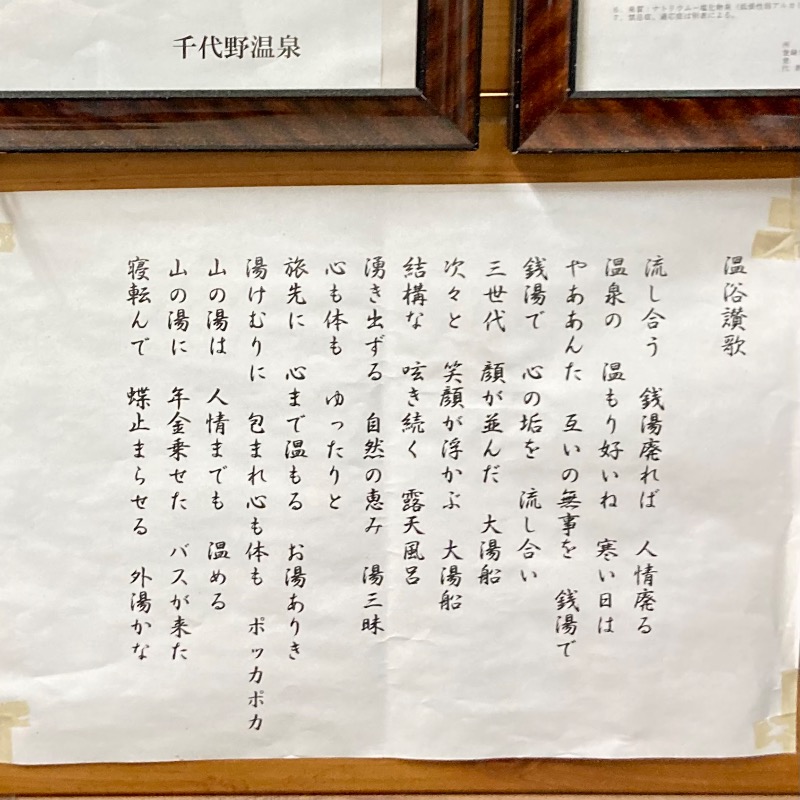 千代野温泉
温浴讃歌
流し合う 銭湯廃れば 人情廃る
温泉の 温もり好いね 寒い日は
やああんた 互いの無事を 銭湯で
銭湯で 心の垢を 流し合い
三世代 顔が並んだ 大湯船
次々と 笑顔が浮かぶ 大湯船
結構な 呟き続く 露天風呂
湧き出ずる 自然の恵み 湯三昧
心も体も ゆったりと
旅先に 心まで温もる お湯ありき
湯けむりに 包まれ心も体も ポッカポカ
山の湯は 人情までも 温める
山の湯に 年金乗せた バスが来た
寝転んで 蝶止まらせる 外湯かな